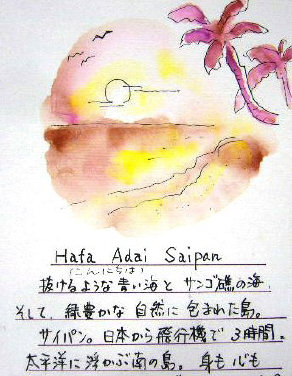 Hafa Adai Saipan
(こんにちは)
抜けるような青い海と サンゴ礁の海.
そして、緑豊かな 自然に 包まれた島。
サイパン。日本から飛行機で 3時間。
太平洋に浮かぶ南の島。 身も心も